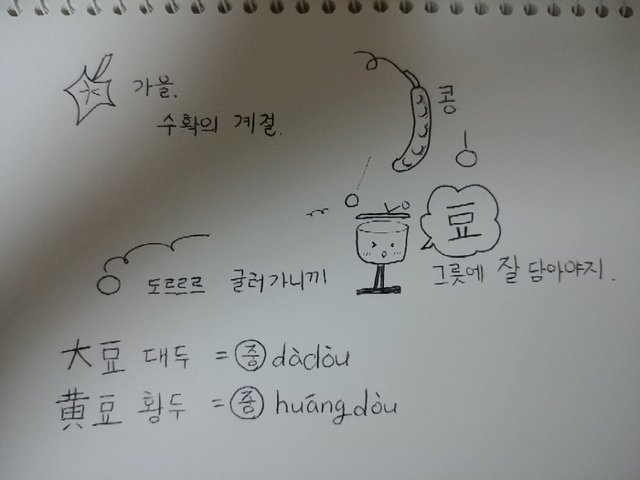 가을.
수확의 계절.
콩
豆
도르르르 굴러가니끼 그릇에 잘 담아야지.
大豆 대두 = 중 dàdòu
黄豆 황두 = 중 huángdòu